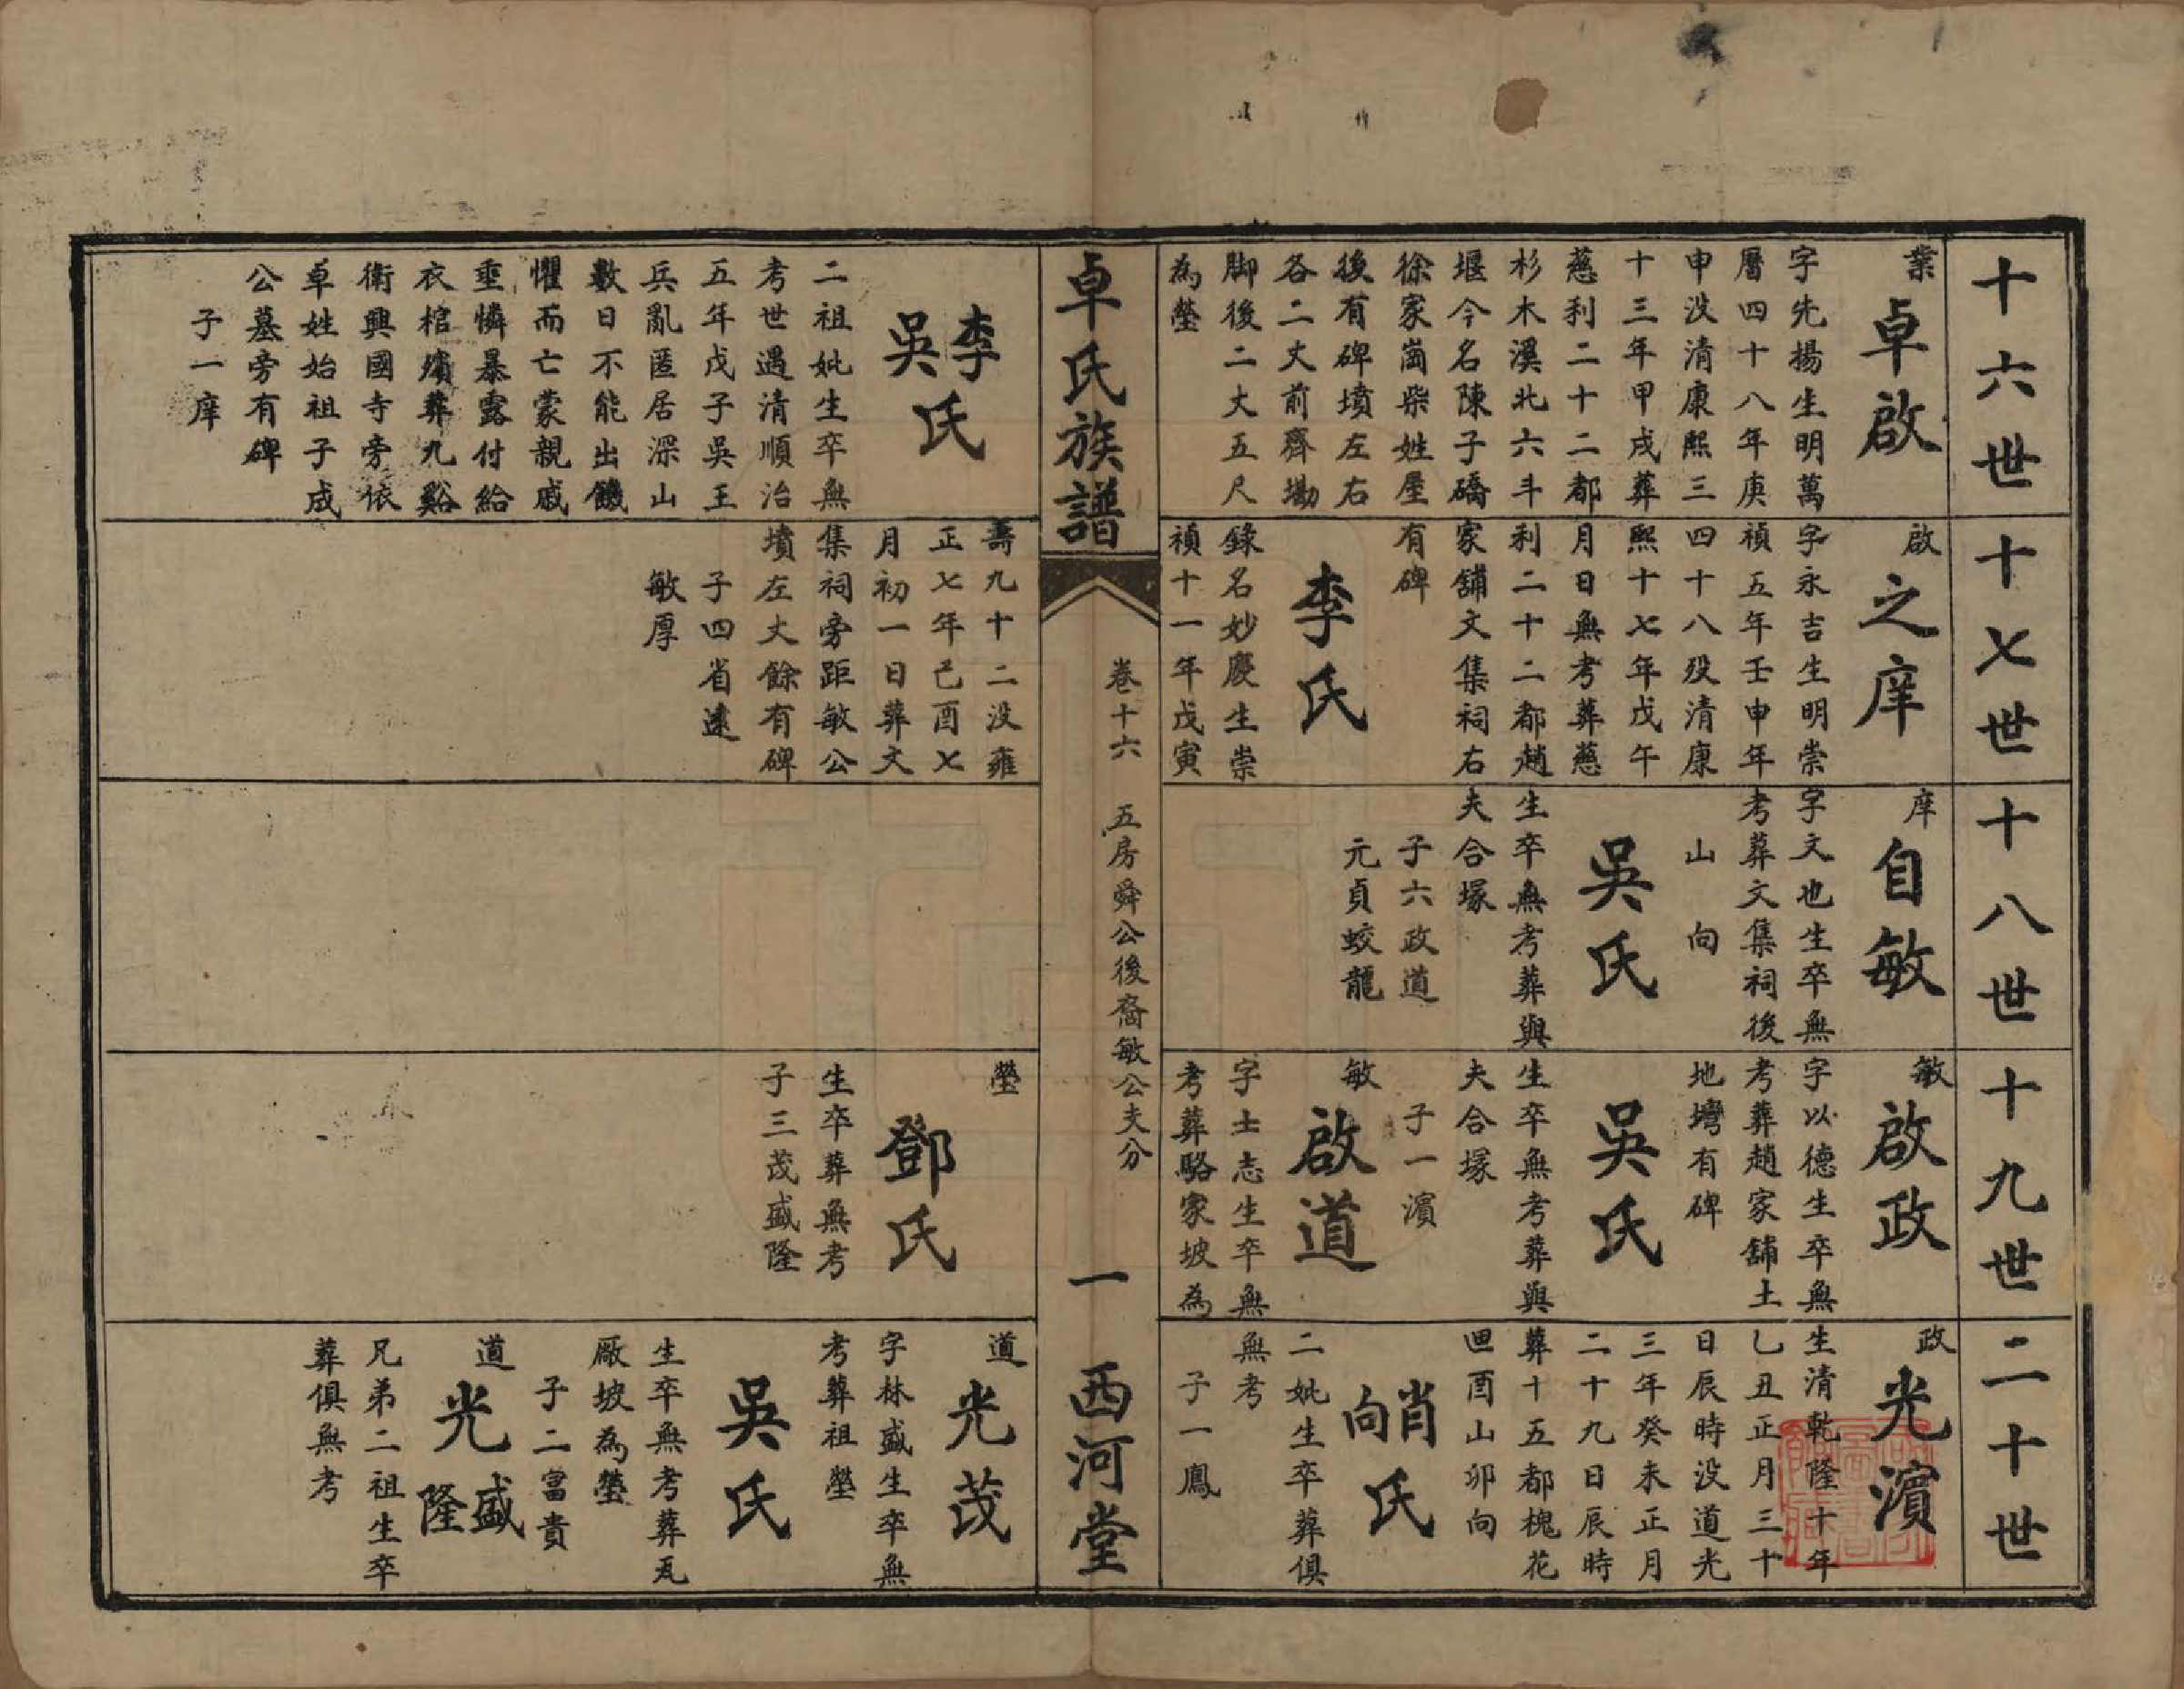 十六世
業
卓啟
字先揚生明萬
曆四十八年庚
申沒清康熙三
十三年甲戌葬
慈利二十二都
杉木溪北六斗
堰今名陳子礄
徐家崗柴姓屋
後有碑墳左右
各二丈前齊墈
脚後二丈五尺
為塋
十七世
啟
之庠
字永吉生明崇
禎五年壬申年
四十八歿清康
熙十七年戊午
月日無考葬慈
利二十二都趙
家舖文集祠右
有碑
李氏
錄名妙慶生崇
禎十一年戊寅
十八世
庠
自敏
字文也生卒無
考葬文集祠後
山 向
吳氏
生卒無考葬與
夫合塚
子六政道
元貞蛟龍
十九世
敏
啟政
字以德生卒無
考葬趙家舖土
地塆有碑
吳氏
生卒無考葬與
夫合塚
子一濵
敏
啟道
字士志生卒無
考葬駱家坡為
二十世
政
光濵
生清乾隆十年
乙丑正月三十
日辰時沒道光
三年癸未正月
二十九日辰時
葬十五都槐花
廻酉山卯向
肖
向
氏
二妣生卒葬俱
無考
子一鳳
卓氏族譜
卷十六 五房舜公後裔敏公夫分
一
西河堂
李氏
吳
氏
二祖妣生卒無
考世遇清順治
五年戊子吳王
兵亂匿居深山
數日不能出饑
懼而亡蒙親戚
垂憐暴露付給
衣棺殯葬九谿
衛興國寺旁依
卓姓始祖子成
公墓旁有碑
子一庠
壽九十二沒雍
正七年己酉七
月初一日葬文
集祠旁距敏公
墳左丈餘有碑
子四省遠
敏厚
塋
鄧氏
生卒葬無考
子三茂盛隆
道
光茂
字林盛生卒無
考葬祖塋
吳氏
生卒無考葬瓦
廠坡為塋
子二富貴
道
光
盛
隆
兄弟二祖生卒
葬俱無考